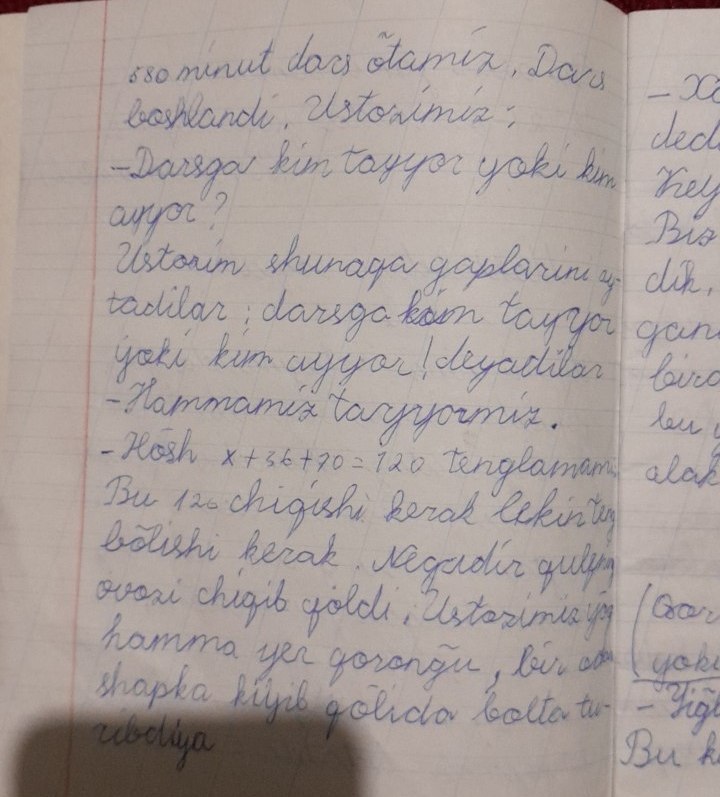 580 minut dars õtamiz. Dars
boshlandi. Ustozimiz:
- Darsga kim tayyor yoki kim
ayyor?
Ustozim shunaqa gaplarini ay-
tadilar; darsga kim tayyor
yoki kim ayyor! deyadilar
- Hammamiz tayyormiz.
- Hõsh x+36+70=120 tenglamami
Bu 120 chiqishi kerak lekin teng
bõlishi kerak. Negadir
ovozi chiqib qoldi. Ustozimiz yõq
hamma yer qorongũ, bir odam
shapka kiyib qõlida bolta tu-
ribdiya
- Xõ
dedi
Key
Biz
dik,
gan
bira
bu y
olak
yoki
- Yiğl
Bu k